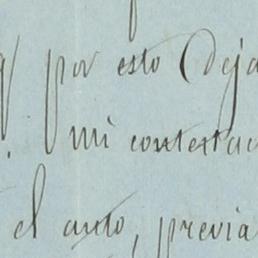 q/ por esto deja
mi contestac
el auto, previa